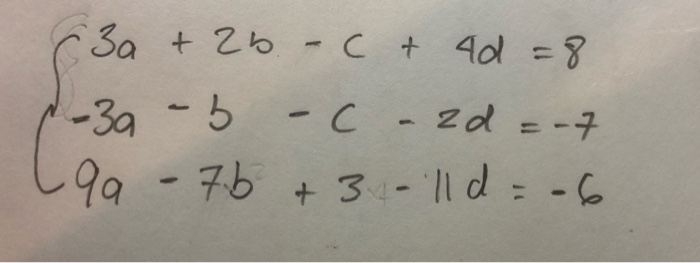 3a + 2b - c + 4d = 8
-3a - b - c - 2d = -7
9a - 7b + 3 - 11d = -6